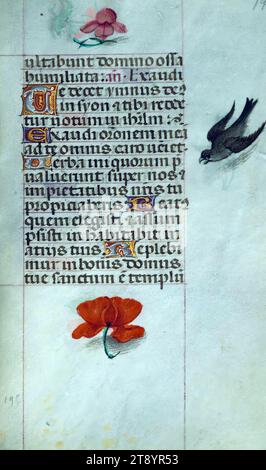 ultabunt domino ossa
humiliata: an̄. Exaudi
Te decet ymnus de⁹
in syon et tibi redde
tur votum in ihrlm:
Exaudi oronem meā
ad te omnis caro veniet
Verba iniquorum p̄
valuerunt super nos et
impietatibus nr̄is tu
propiciaberis. Beat⁹
quem elegisti et assum
psisti inhabitabit in
atriis tuis. Reple bi
mur in bonis domus
tue sanctum ē templū
alamy
Image ID: 2T8YR53
www.alamy.com